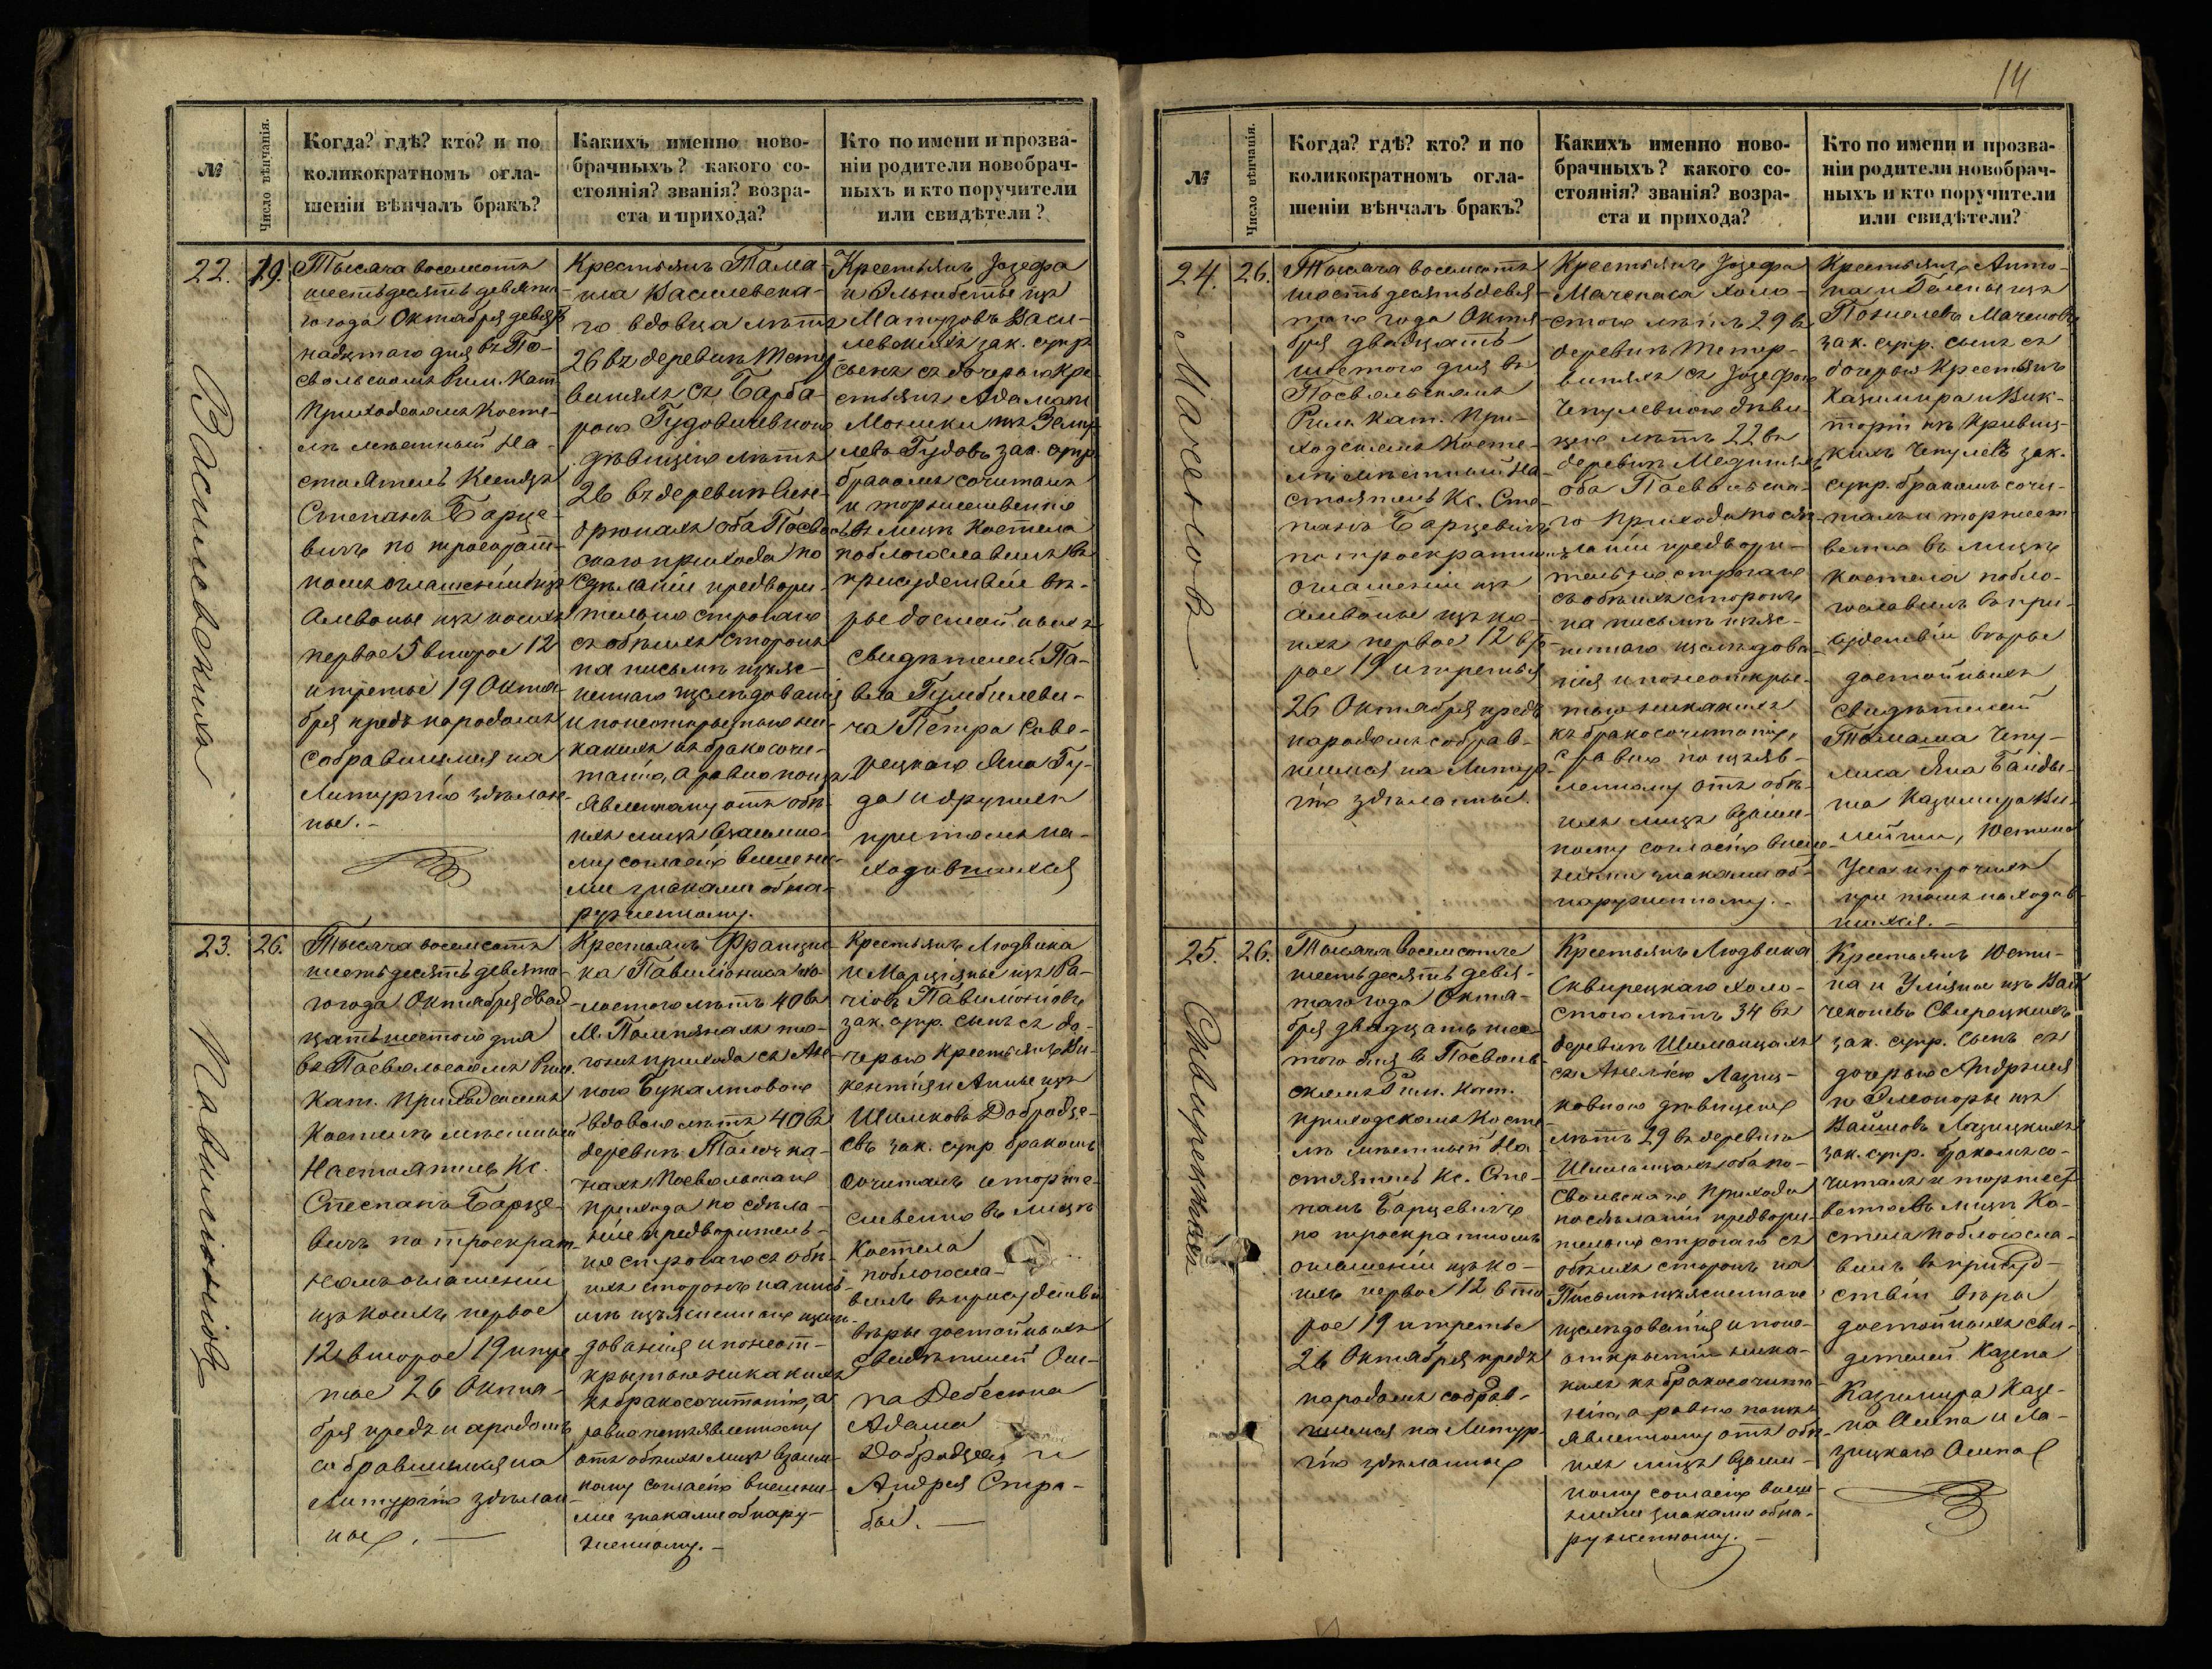 14
№
Число вѣнчанія.
Когда? гдѣ? кто? и по
коликократномъ огла-
шеніи вѣнчалъ бракъ?
Какихъ именно ново-
брачныхъ? какого со-
стоянія? званія? возра-
ста и прихода?
Кто по имени и прозва-
ніи родители новобрач-
ныхъ и кто поручители
или свидѣтели?
22.
19.
Василевскихъ
Тысяча восемсотъ
шестьдесятъ девята-
го года Октября девят
надцатаго дня въ По-
свольскомъ Рим. Кат.
Приходскомъ Косте-
лѣ мѣстный На-
стоятель Ксендзъ
Степанъ Барце-
вичъ по троекрат-
номъ оглашеніи изъ
Амвоны изъ коихъ
первое 5 второе 12
и третье 19 Октя-
бря предъ народомъ
собравшимся на
Литургію здѣлан-
ные.-
Крестьянъ Тама-
ша Василевска-
го вдовца лѣтъ
26 въ деревнѣ
съ Барба-
рою Гудовичевною
дѣвицею лѣтъ
26 въ деревнѣ
оба Посволь
скаго прихода по
сдѣланіи предвори-
тельно строгаго
съ обѣихъ сторонъ
на письмѣ изъяс-
неннаго изслѣдованія
и по неоткрытію ни-
какихъ къ бракосоче-
танію, а равно по изъ
явленному отъ обѣ-
ихъ лицъ взаимно-
му согласію внешни-
ми знаками обна-
руженному.
Крестьянъ Іозефа
и Эльжбеты изъ
Васи-
левскихъ зак. супр.
сынъ съ дочерью Кре-
стьянъ Адама и
Моники изъ
Гудовъ зак. супр.
бракомъ сочиталъ
и торжественно
въ лицѣ Костела
поблогославилъ въ
присудствіи вѣ-
ры достойныхъ
свидѣтелей Па-
вла Гумбилеви-
ча Петра Скве-
рецкаго Яна Гу-
да и другихъ
при томъ на-
ходившихся
23.
26.
Павиліоніовъ
Тысяча восемсотъ
шестьдесятъ девята-
го года Октября двад
цать шестого дня
въ Посвольскомъ Рим.
Кат. приходскомъ
Костелѣ мѣстный
Настоятель Кс.
Степанъ Барце-
вичъ по троекрат-
номъ оглашеніи
изъ коихъ первое
12 второе 19 и тре
тье 26 Октя-
бря предъ народомъ
собравшимся на
Литургію здѣлан-
ные. —
Крестьянъ Францис-
ка Павиліониса хо-
лостого лѣтъ 40 въ
М. того-
же прихода съ Ан-
ною Букантовою
вдовою лѣтъ 40 въ
деревнѣ
Посвольскаго
прихода по сдѣла-
ніи предворитель-
но строгаго съ обѣ-
ихъ сторонъ на пись-
мѣ изъясненнаго изслѣ-
дованія и по неот-
крытію никакихъ
къ бракосочитанію, а
равно по изъявленному
отъ обѣихъ лицъ взаим-
ному согласію внешни-
ми знаками обнару-
женному.-
Крестьянъ Людвика
и Марціянны изъ Ра-
Павиліоніовъ
зак. супр. сынъ съ до-
черью Крестьянъ Ви-
кентія и Анны изъ
Шимковъ Добродзе-
евъ зак. супр. бракомъ
сочиталъ и торже-
ственно въ лицѣ
Костела
поблогосла-
вилъ въ присудствіи
вѣры достойныхъ
свидѣтелей Оси-
па Дебесюна
Адама
Добродзея и
Андрея Стра-
бы. —
№
Число вѣнчанія.
Когда? гдѣ? кто? и по
коликократномъ огла-
шеніи вѣнчалъ бракъ?
Какихъ именно ново-
брачныхъ? какого со-
стоянія? званія? возра-
ста и прихода?
Кто по имени и прозва-
ніи родители новобрач-
ныхъ и кто поручители
или свидѣтели?
24.
26.
Тысяча восемсотъ
шесть десять девя-
таго года Октя-
бря двадцать
шестого дня въ
Посвольскомъ
Рим. Кат. При-
ходскомъ Косте-
лѣ мѣстный На-
стоятель Кс. Сте-
панъ Барцевичъ
по троекратномъ
оглашеніи изъ
Амвоны изъ ко-
ихъ первое 12 вто
рое 19 и третья
26 Октября предъ
народомъ собрав-
шимся на Литур-
гію здѣланные.
Крестьянъ Іозефа
холо-
стого лѣтъ 29 въ
деревнѣ
съ Іозефою
Чепулевною дѣви-
цею лѣтъ 22 въ
деревнѣ
оба Посвольска-
го прихода по сдѣ-
ланіи предвори-
тельно строгаго
съ обѣихъ сторонъ
на письмѣ изъяс-
неннаго изслѣдова-
нія и по неоткры-
тію никакихъ
къ бракосочитанію,
а равно по изъяв-
ленному отъ обѣ-
ихъ лицъ взаим-
ному согласію внеш-
ними знаками об-
наруженному.-
Крестьянъ Анто-
на и изъ
зак. супр. сынъ съ
дочерью Крестьянъ
Казимира и Вик-
торіи изъ Кривиц-
кихъ Чепулевъ зак.
супр. бракомъ сочи-
талъ и торжест-
венно въ лицѣ
костела побло-
гославилъ въ при-
судствіи вѣры
достойныхъ
свидѣтелей
Тамаша Чепу-
лиса Яна
Казимира
Юстина
и прочихъ
при томъ находив-
шихся.-
25.
26.
Сквирецкихъ
Тысяча восемсотъ
шесть десятъ девя-
таго года Октя-
бря двадцать шес-
того дня въ Посволь-
скомъ Рим. Кат.
приходскомъ Косте
лѣ мѣстный На-
стоятель Кс. Сте-
панъ Барцевичъ
по троекратномъ
оглашеніи изъ ко-
ихъ первое 12 вто-
рое 19 и третье
26 Октября предъ
народомъ собрав-
шимся на Литур-
гію зделанные
Крестьянъ Людвика
Сквирецкаго холо-
стого лѣтъ 34 въ
деревнѣ
съ Анелією Лазиц-
ковною дѣвицею
лѣтъ 29 въ деревнѣ
оба По-
свольскаго Прихода
по сдѣланіи предвори-
тельно строгаго съ
обѣихъ сторонъ на
Письмѣ изъясненнаго
изслѣдованія и по не-
открытію ника-
кихъ къ бракосочита-
нію, а равно по изъ
явленному отъ обѣ-
ихъ лицъ взаим-
ному согласію внеш-
ними знаками обна-
руженному. —
Крестьянъ Юсти-
на и изъ
Сквирецкихъ
зак. супр. сынъ съ
дочерью Андржея
и Элеоноры изъ
Лазицкихъ
зак. супр. бракомъ со-
читалъ и торжест-
венно въ лицѣ Ко-
стела поблогосла-
вилъ въ присуд-
ствіи вѣры
достойныхъ сви-
детелей
Казимира
и Ла-
зицкаго Осипа